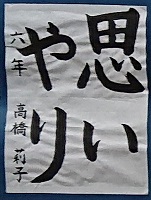 思い
やり
六年 高橋莉子